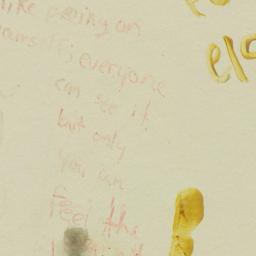 like peeing on
yourself; everyone
can see it
but only
you can
feel the
els